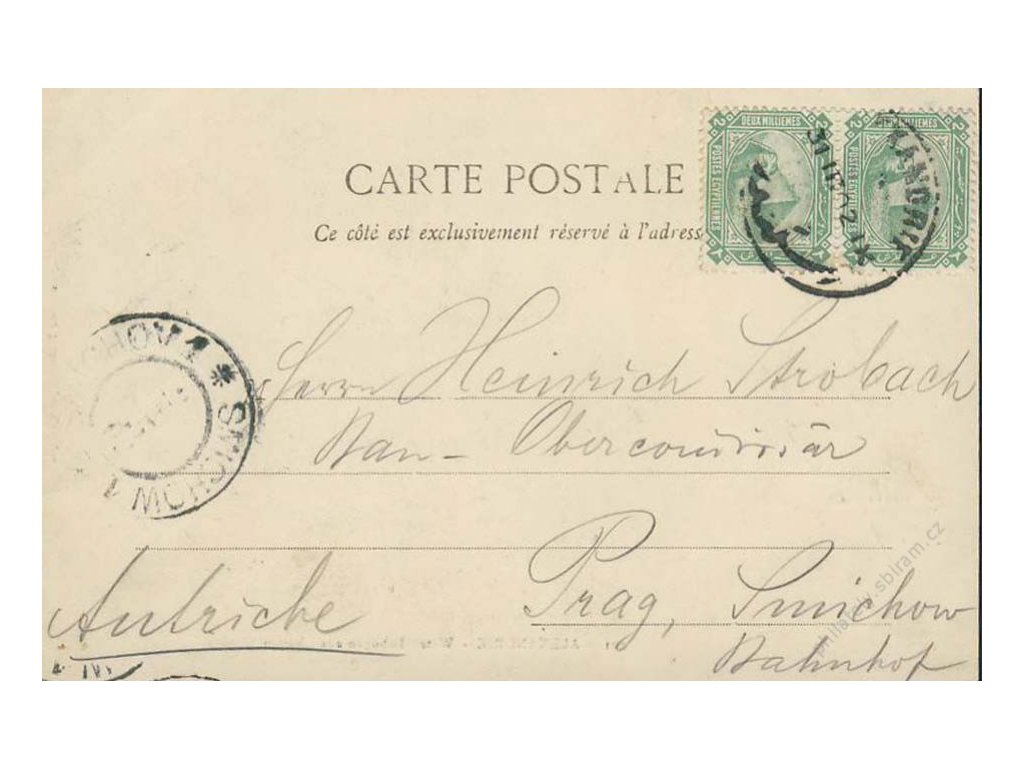 CARTE POSTALE
Ce côté est exclusivement réservé à l'adresse
DEUX MILLIEMES
POSTES EGYPTIENNES
2 2
POSTES EGYP
2 2
XANDRIE
31 III 02
SMICHOV 1 * SMICHOV 1
Herrn Heinrich Strobach
Bau - Obercommissär
Prag, Smichow
Bahnhof
Autriche
sbiram.cz